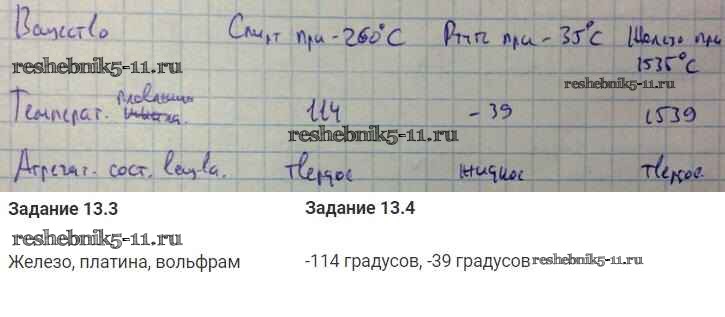 Вещество Спирт при -260°C Ртуть при -35°C Железо при 1535°C
reshebnik5-11.ru
reshebnik5-11.ru
Температ. плавлення 114 -39 1539
reshebnik5-11.ru
Агрегат. сост. вещ-ва. твердое жидкое твердое
Задание 13.3 Задание 13.4
reshebnik5-11.ru
Железо, платина, вольфрам -114 градусов, -39 градусов reshebnik5-11.ru